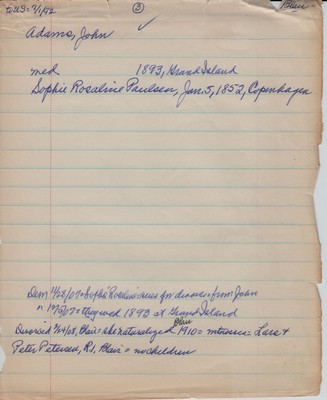 3
Blair
Adams, John
med 1893, Grand Island
Sophie Rosaline Paulsen, Jan. 5, 1852, Copenhagen
Dem 11/28/07 = Sophie Rosaline sues for divorce from John
" 12/5/07 = they wed 1893 at Grand Island
Divorced 2/24/08, Blair = she naturalized Blair 1910 = witnesses = Lars &
Peter Petersen, R1, Blair = no children